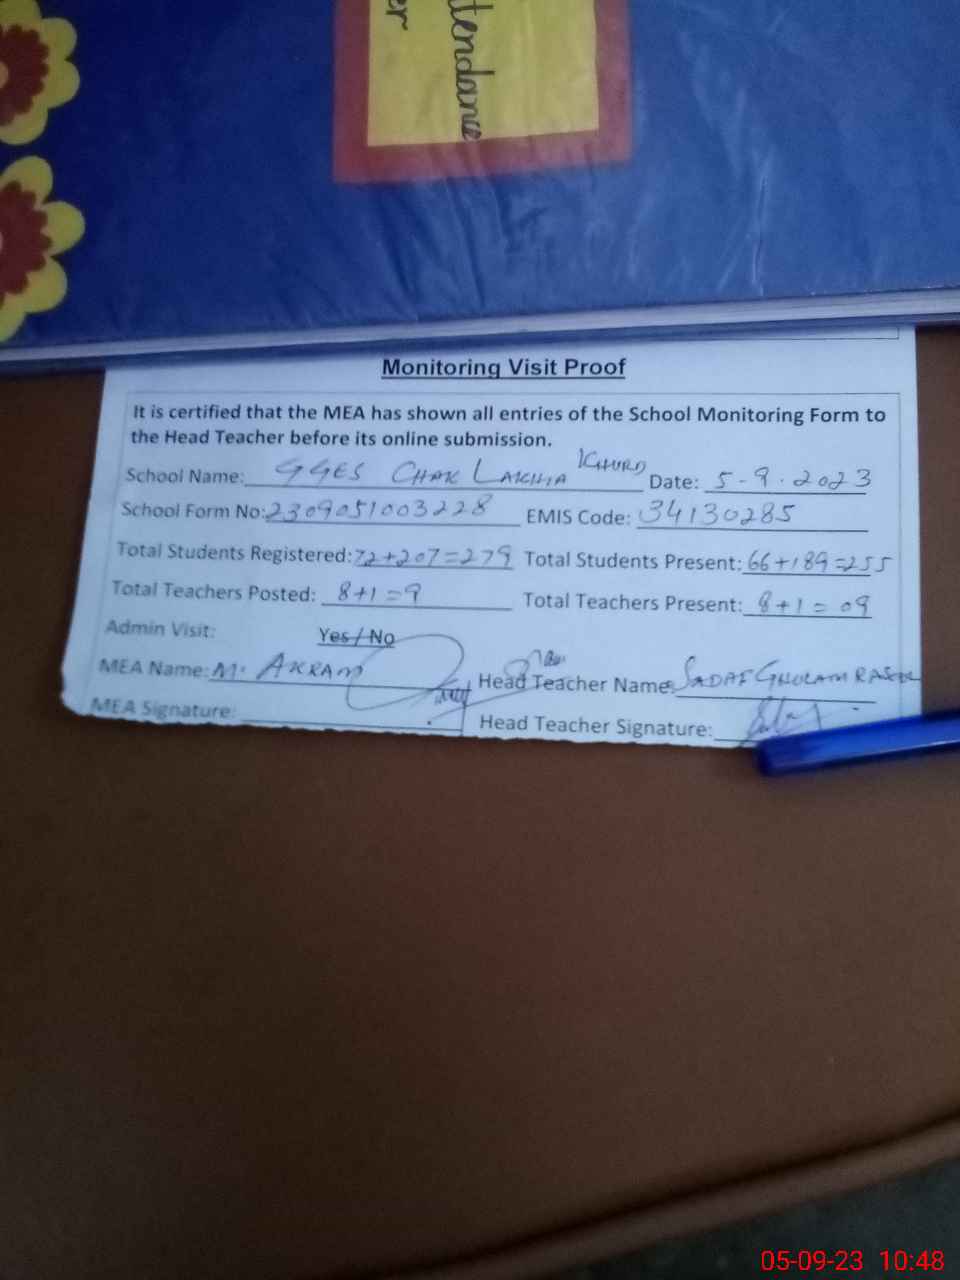 tendance
er
Monitoring Visit Proof
It is certified that the MEA has shown all entries of the School Monitoring Form to
the Head Teacher before its online submission.
School Name: GGES CHAK LAKHIA KHURD Date: 5-9.2023
School Form No: 2309051003228 EMIS Code: 34130285
Total Students Registered: 72+207=279 Total Students Present: 66+189=255
Total Teachers Posted: 8+1=9 Total Teachers Present: 8+1=09
Admin Visit: Yes/No
MEA Name: M. AKRAM Head Teacher Name: SADAF GHULAM RASOOL
MEA Signature: Head Teacher Signature:
05-09-23 10:48